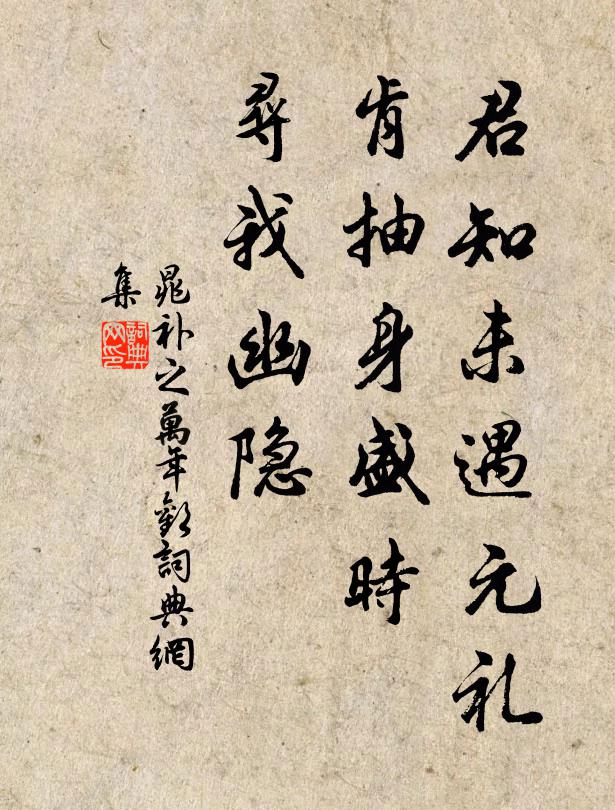 君知未遇元礼
肯抽身盛時
尋我幽隐
晁补之萬年歡詞典網
集
詞典网印